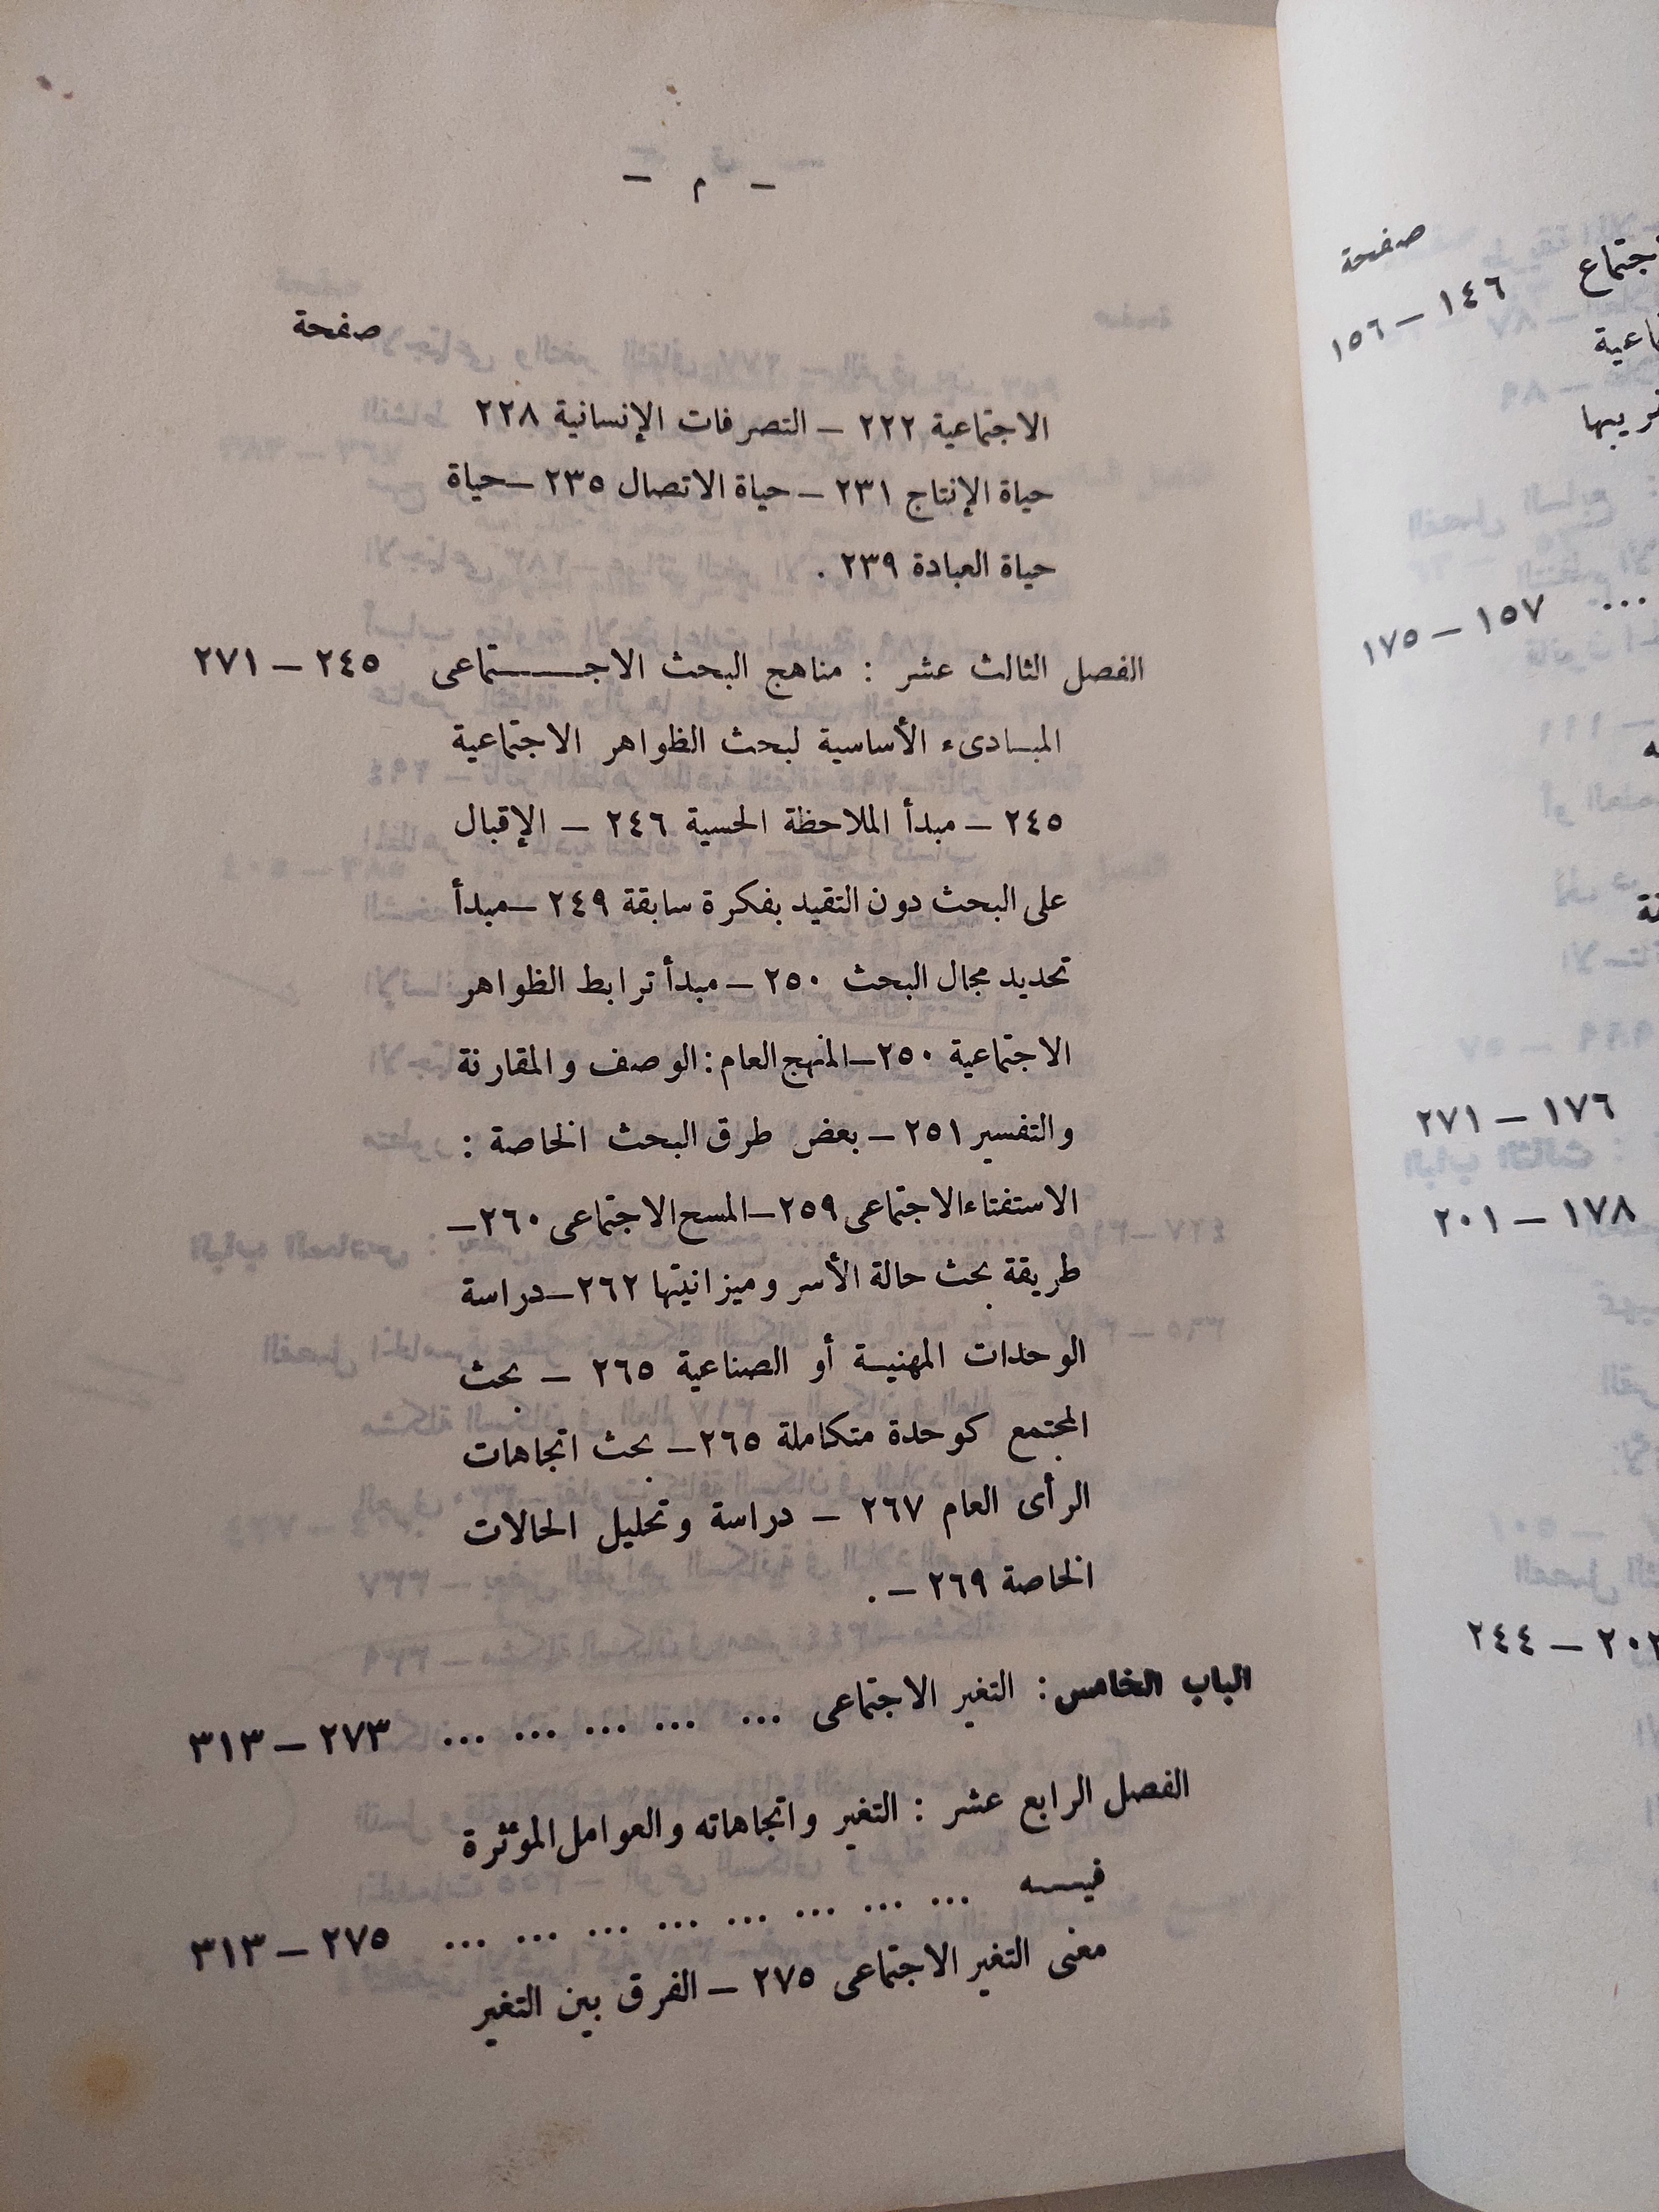 صفحة
اجتماع ١٤٦ – ١٥٦
... ١٥٧ – ١٧٥
١٧٦ – ٢٧١
١٧٨ – ٢٠١
– ٢٤٤
– م –
صفحة
الاجتماعية ٢٢٢ – التصرفات الإنسانية ٢٢٨
حياة الإنتاج ٢٣١ – حياة الاتصال ٢٣٥ – حياة
حياة العبادة ٢٣٩ .
الفصل الثالث عشر : مناهج البحث الاجـــتماعى ٢٤٥ – ٢٧١
المبـادىء الأساسية لبحث الظواهر الاجتماعية
٢٤٥ – مبدأ الملاحظة الحسية ٢٤٦ – الإقبال
على البحث دون التقيد بفكرة سابقة ٢٤٩ – مبدأ
تحديد مجال البحث ٢٥٠ – مبدأ ترابط الظواهر
الاجتماعية ٢٥٠ – المنهج العام : الوصف والمقارنة
والتفسير ٢٥١ – بعض طرق البحث الخاصة :
الاستفتاء الاجتماعى ٢٥٩ – المسح الاجتماعى ٢٦٠ –
طريقة بحث حالة الأسر وميزانيتها ٢٦٢ – دراسة
الوحدات المهنيـة أو الصناعية ٢٦٥ – بحث
المجتمع كوحدة متكاملة ٢٦٥ – بحث اتجاهات
الرأى العام ٢٦٧ – دراسة وتحليل الحالات
الخاصة ٢٦٩ – .
الباب الخامس : التغير الاجتماعى ... ... ... ... ... ٢٧٣ – ٣١٣
الفصل الرابع عشر : التغير واتجاهاته والعوامل المؤثرة
فيـــه ... ... ... ... ... ... ... ... ٢٧٥ – ٣١٣
معنى التغير الاجتماعى ٢٧٥ – الفرق بين التغير